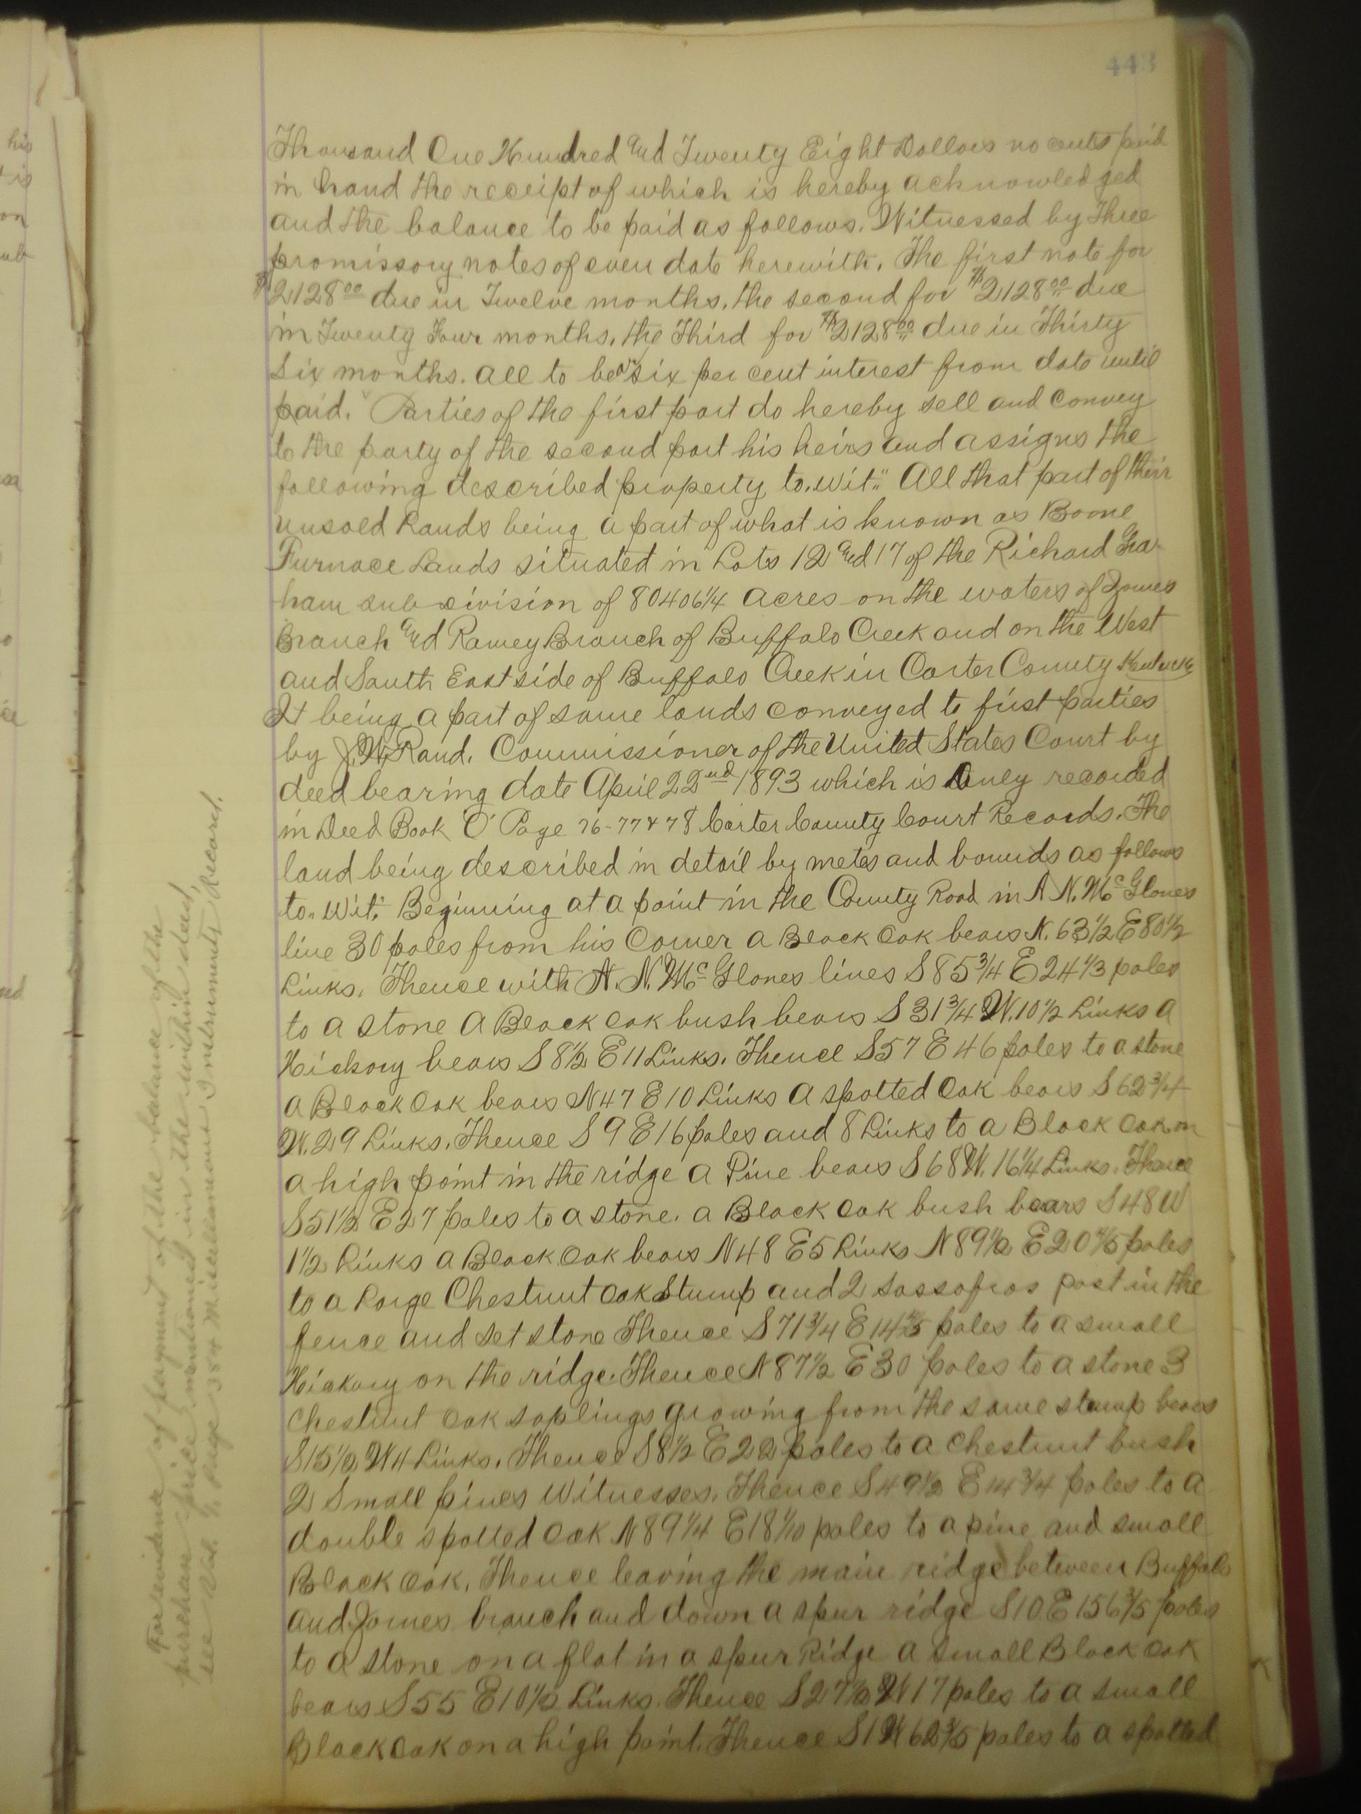 443
Thousand One Hundred and Twenty Eight Dollars no cents paid
in hand the receipt of which is hereby acknowledged
and the balance to be paid as follows. Witnessed by three
promissory notes of even date herewith. The first note for
$2128.00 due in Twelve months, the second for $2128.00 due
in Twenty Four months, the Third for $2128.00 due in Thirty
Six months. all to bear six per cent interest from date until
paid. Parties of the first part do hereby sell and convey
to the party of the second part his heirs and assigns the
following described property to.wit:" All that part of their
unsold Lands being a part of what is known as Boone
Furnace Lands situated in Lots 12 and 17 of the Richard Gra-
ham sub division of 80406 1/4 acres on the waters of Jones
Branch and Ramey Branch of Buffalo Creek and on the West
and South East side of Buffalo Creek in Carter County Kentucky
It being a part of same lands conveyed to first parties
by J.W. Rand. Commissioner of the United States Court by
deed bearing date April 22nd 1893 which is Duley recorded
in Deed Book "O" Page 76-77 & 78 Carter County Court Records. The
land being described in detail by metes and bounds as follows
to. Wit: Beginning at a point in the County Road in A N. McGlones
line 30 poles from his Corner a Black Oak bears N. 63 1/2 E 80 1/2
Links. Thence with A. N. McGlones lines S 85 3/4 E 24 1/3 poles
to a stone a Black oak bush bears S 31 3/4 W. 10 1/2 Links a
Hickory bears S 8 1/2 E 11 Links. Thence S 57 E 46 poles to a stone
a Black Oak bears N 47 E 10 Links a spotted Oak bears S 62 3/4
W. 29 Links. Thence S 9 E 16 poles and 8 Links to a Black Oak on
a high point in the ridge a Pine bears S 68 W. 16 1/4 Links. Thence
S 51 1/2 E 27 poles to a stone. a Black oak bush bears S 48 W
1 1/2 Links a Black Oak bears N 48 E 5 Links N 89 1/2 E 20 4/5 poles
to a Large Chestnut oak Stump and 2 sassafras post in the
fence and set stone Thence S 71 3/4 E poles to a small
Hickory on the ridge. Thence N 87 1/2 E 30 poles to a stone 3
chestnut oak saplings growing from the same stump bears
S 15 1/2 W 4 Links. Thence S 8 1/2 E 22 poles to a chestnut bush
2 Small pines Witnesses. Thence S 49 1/2 E 14 3/4 poles to a
double spotted Oak N 89 1/4 E 18 1/10 poles to a pine and small
Black oak. Thence leaving the main ridge between Buffalo
and Jones branch and down a spur ridge S 10 E 156 3/5 poles
to a stone on a flat in a spur Ridge a small Black Oak
bears S 55 E 10 1/2 Links. Thence S 27 1/2 W 17 poles to a small
Black Oak on a high point. Thence S 1 W 62 3/5 poles to a spotted
For evidence of payment of the balance of the
purchase price mentioned in the within deed,
see Vol. G. Page 384 Miscellaneous Instruments Record.